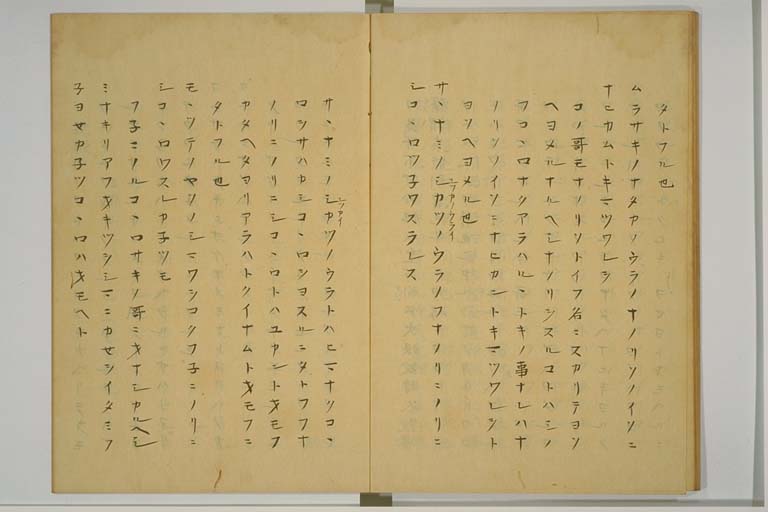 タトフル也
ムラサキノナタカノウラノナノリソノイソニ
ナヒカムトキマツワレヲ
コノ哥モナノリソトイフ名ニスカリテヨソ
ヘヨメルナルヘシナノリヲスルコトハシノ
フコヽロナクアラハルヽトキノ事ナレハナ
ノリソノイソニナヒカントキマツワレヲト
ヨソヘヨメル也
サヽナミノシカツノウラノフナノリニノリニ
シコヽロツ子ワスラレス
サヽナミノシカツノウラトハヒマナクコヽ
ロヲサハカシコヽロヲヨスルニタトフフナ
ノリニノリニシコヽロトハユカントオモフ
カタヘタヨリアラハトクイナムトオモフニ
タトフル也
モヽツテノヤソノシマワヲコクフ子ニノリニ
シコヽロワスレカ子ツモ
フ子ニノルコヽロサキノ哥ニオナシカルヘシ
ミナキリアフオキツシマニカセヲイタミフ
子ヨセカ子ツコヽロハオモヘト